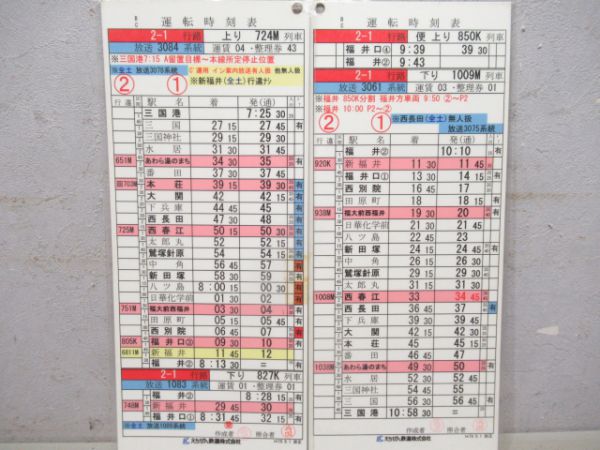 運転時刻表
2-1 行路 上り 724M 列車
放送 3084 系統 運賃 04・整理券 43
※三国港7:15 A留置目標～本線所定停止位置
※全土 放送3076系統
② ① ※新福井(全土)行違ﾅｼ
行違 駅名 着 発(通)
三国港 7:25 30
三国 27 15 27 45 有
三国神社 29 15 29 30
水居 31 30 31 45
651M あわら湯のまち 34 30 35 有
番田 37 30 37 45
本荘 39 15 39 30 有
大関 42 42 15 有
下兵庫 44 45 45 有
西長田 47 30 48 有
725M 西春江 50 15 50 30 有
太郎丸 52 52 15 有
鷲塚針原 54 54 15 有
中角 56 45 57 有
新田塚 58 30 59 有
八ツ島 8:00 15 00 30 有
日華化学前 01 30 02 有
751M 福大前西福井 03 30 04 有
田原町 05 15 05 30 有
西別院 06 45 07 有
805K 福井口② 09 10 30 有
6811M 新福井 11 45 12 有
福井② 8:13 30
2-1 行路 下り 827K 列車
放送 1083 系統 運賃 01・整理券 01
福井② 8:28 15 有
748M 新福井 29 45 30 有
福井口① 8:31 45 32 15 有
※全土 放送1089系統
作成者 照合者
えちぜん鉄道株式会社
運転時刻表
2-1 行路 便上り 850K 列車
福井口④ 9:39 39 30
福井② 9:43
2-1 行路 下り 1009M 列車
放送 3061 系統 運賃 03・整理券 02
※福井 850K分割 福井方車両 9:50 ②～P2
※福井 10:00 P2～②
② ① ※西長田(全土)無人扱
放送3075系統
行違 駅名 着 発(通)
福井② 10:10 有
920K 新福井 11 30 11 45 有
福井口① 13 30 14 15 有
西別院 16 45 17
田原町 18 18 15 有
938M 福大前西福井 19 30 20 有
日華化学前 21 21 30
八ツ島 22 45 23
新田塚 24 15 24 30 有
中角 26 15 26 30
鷲塚針原 29 29 15 有
太郎丸 31 31 15 有
1008M 西春江 33 34 45 有
西長田 36 45 37 有
下兵庫 39 30 39 45
大関 42 42 15 有
本荘 45 45 15 有
番田 46 45 47
1038M あわら湯のまち 49 30 50 有
水居 52 30 52 45
三国神社 54 45 55
三国 56 30 56 45 有
三国港 10:58 30
作成者 照合者
えちぜん鉄道株式会社